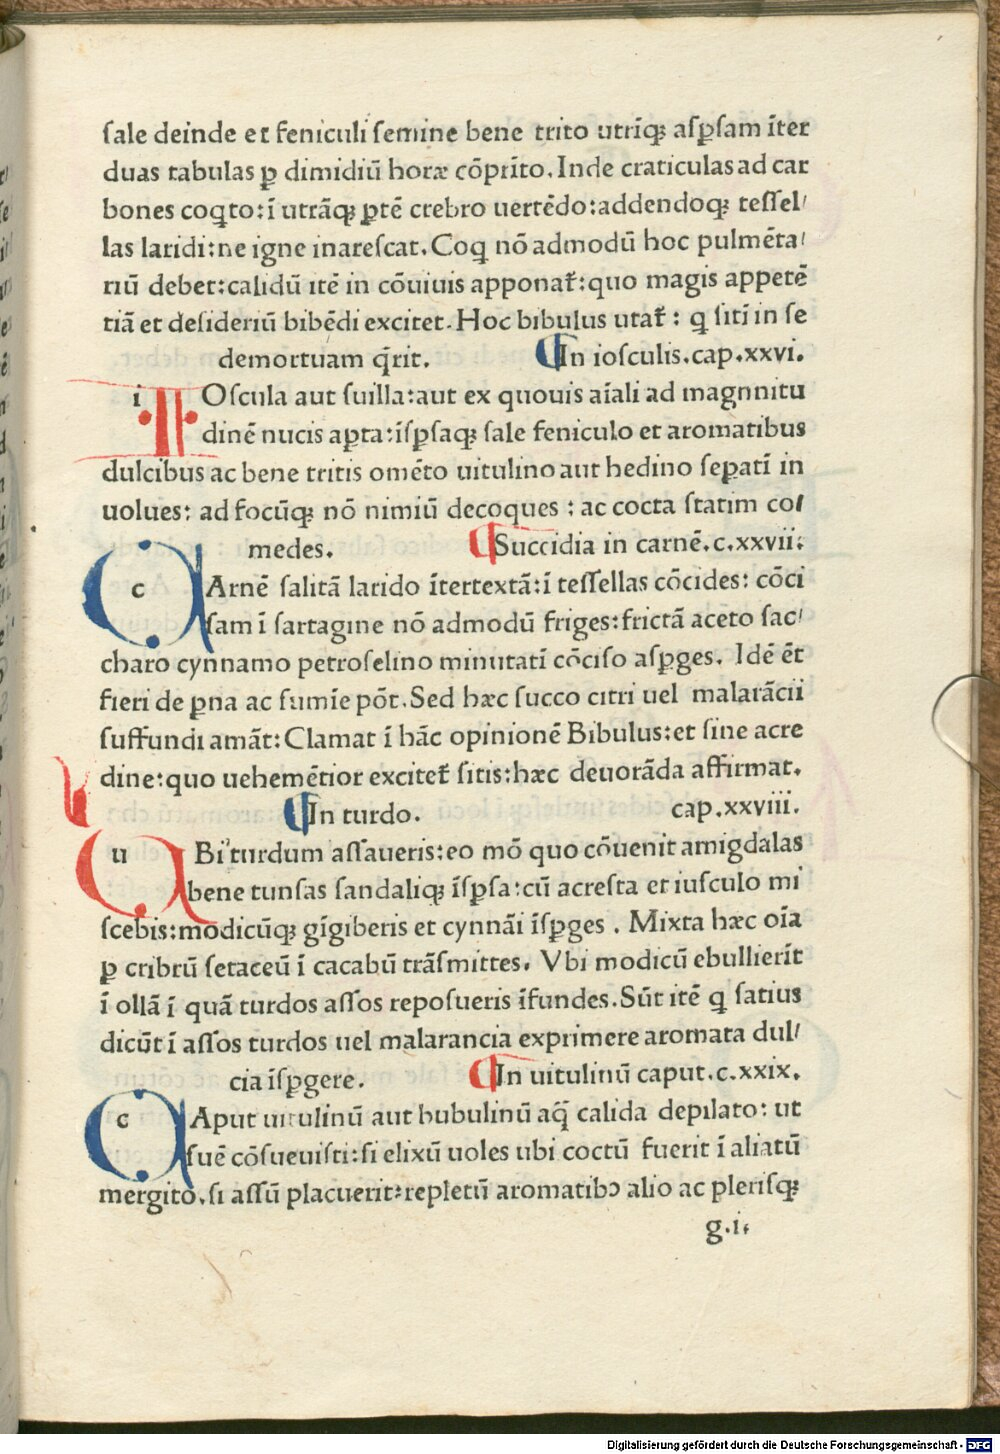 sale deinde et feniculi semine bene trito utrīqꝫ aspsam īter
duas tabulas ꝑ dimidiū horæ cōprīto. Inde craticulas ad car
bones coqto: ī utrāqꝫ ptē crebro uertēdo: addendoqꝫ tessel/
las laridi: ne igne inarescat. Coq nō admodū hoc pulmēta/
riū debet: calidū itē in cōuiuis apponat᷑: quo magis appetē
tiā et desideriū bibēdi excitet. Hoc bibulus utat᷑ : q sitī in se
demortuam q̄rit. ¶In iosculis. cap. xxvi.
i IOscula aut suilla: aut ex quouis aīali ad magnnitu
dinē nucis apta: īspsaqꝫ sale feniculo et aromatibus
dulcibus ac bene tritis omēto uitulino aut hedino sepatī in
uolues: ad focūqꝫ nō nimiū decoques : ac cocta statim co/
medes. ¶Succidia in carnē. c. xxvii:
c CArnē salitā larido ītertextā: ī tessellas cōcides: cōci
sam ī sartagine nō admodū friges: frictā aceto sac/
charo cynnamo petroselino minutatī cōciso aspges. Idē ēt
fieri de pna ac sumīe pōt. Sed hæc succo citri uel malarācii
suffundi amāt: Clamat ī hāc opinionē Bibulus: et sine acre
dine: quo uehemētior excitet᷑ sitis: hæc deuorāda affirmat.
¶In turdo. cap. xxviii.
u VBi turdum assaueris: eo mō quo cōuenit amigdalas
bene tunsas sandaliqꝫ īspsa: cū acresta et iusculo mi
scebis: modicūqꝫ gīgiberis et cynnāi īspges . Mixta hæc oīa
ꝑ cribrū setaceū ī cacabū trāsmittes. Vbi modicū ebullierīt
ī ollā ī quā turdos assos reposueris īfundes. Sūt itē q satius
dicūt ī assos turdos uel malarancia exprimere aromata dul/
cia īspgere. ¶In uitulinū caput. c. xxix.
c CAput uitulinū aut bubulinū aq̄ calida depilato: ut
suē cōsueuisti: si elixū uoles ubi coctū fuerit ī aliatū
mergito. si assū placuerit: repletū aromatibꝰ alio ac plerisqꝫ
g. i.
Digitalisierung gefördert durch die Deutsche Forschungsgemeinschaft - DFG